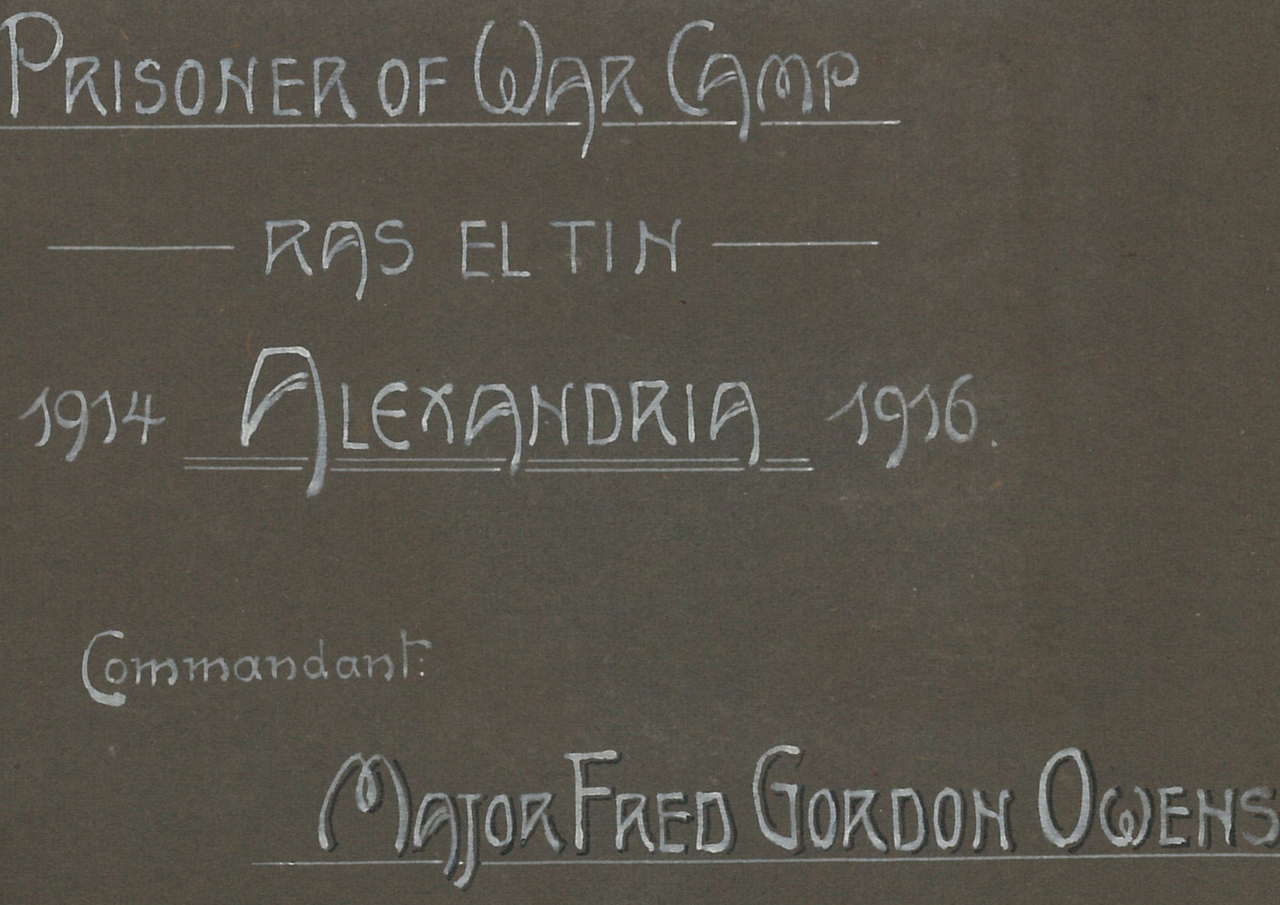 PRISONER OF WAR CAMP
RAS EL TIN
1914 ALEXANDRIA 1916.
Commandant:
MAJOR FRED GORDON OWENS